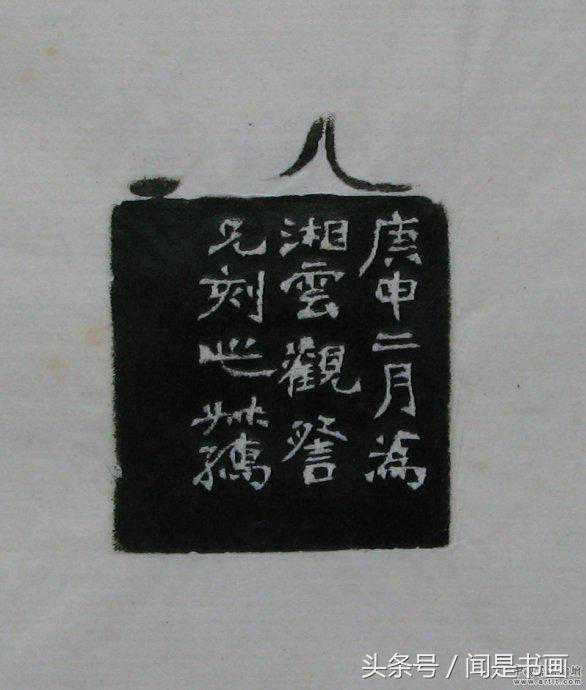 庚申二月為
湘雲觀詧
兄刻之叔孺
头条号 / 闻是书画